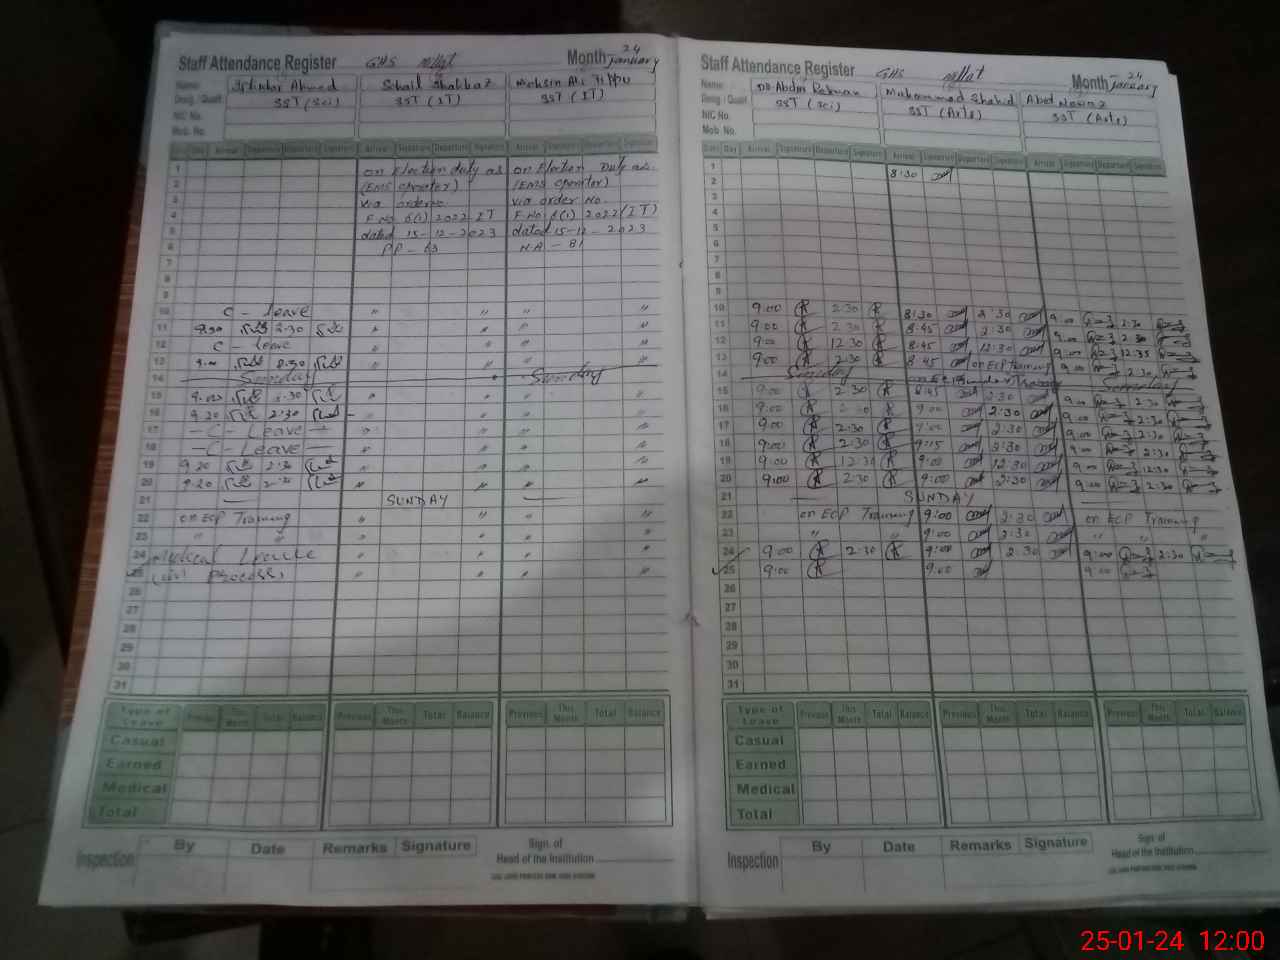 Staff Attendance Register GHS Month 24 January
Name: Ahmed Sohail Shahbaz Mohsin Ali Tippu
Desig. / Qualif. SST (Sci) SST (IT) SST (IT)
NIC No.
Mob. No.
Date Day Arrival Signature Departure Signature Arrival Signature Departure Signature Arrival Signature Departure Signature
1 on Election duty as on Election Duty as
2 (EMS operator) (EMS operator)
3 via order no. via order No.
4 F. No 6(1) 2022 IT F. No 6(1) 2022 (IT)
5 dated 15-12-2023 dated 15-12-2023
6 PP - 63 NA - 81
7
8
9
10 C - leave " " " "
11 9:20 2:30 " " " "
12 C - leave " " " "
13 9:00 " " " "
14 Sunday Sunday
15 9:00 2:30 " " " "
16 9:20 2:30 " " " "
17 - C - Leave - " " " "
18 - C - Leave - " " " "
19 9:20 2:30 " " " "
20 9:20 2:30 " " " "
21 SUNDAY
22 on ECP Training " " " "
23 " " " " " "
24 Medical Leave " " " "
25 " " " "
26
27
28
29
30
31
Type of Leave Previous This Month Total Balance Previous This Month Total Balance Previous This Month Total Balance
Casual
Earned
Medical
Total
Inspection By Date Remarks Signature Sign. of Head of the Institution
Staff Attendance Register GHS Month 24 January
Name: Abdur Rehman Muhammad Shahid Abid Nawaz
Desig. / Qualif. SST (Sci) SST (Arts) SST (Arts)
NIC No.
Mob. No.
Date Day Arrival Signature Departure Signature Arrival Signature Departure Signature Arrival Signature Departure Signature
1 8:30
2
3
4
5
6
7
8
9
10 9:00 2:30 8:30 2:30 9:00 2:30
11 9:00 2:30 8:45 2:30 9:00 2:30
12 9:00 12:30 8:45 12:30 9:00 12:35
13 9:00 2:30 8:45 on ECP Training 9:00 2:30
14 Sunday Sunday
15 9:00 2:30 8:45 2:30 9:00 2:30
16 9:00 2:30 9:00 2:30 9:00 2:30
17 9:00 2:30 9:00 2:30 9:00 2:30
18 9:00 2:30 9:15 2:30 9:00 2:30
19 9:00 12:30 9:00 12:30 9:00 12:30
20 9:00 2:30 9:00 2:30 9:00 2:30
21 SUNDAY
22 on ECP Training 9:00 2:30 on ECP Training
23 " " 9:00 2:30 " " "
24 9:00 2:30 9:00 2:30 9:00 2:30
25 9:00 9:00 9:00
26
27
28
29
30
31
Type of Leave Previous This Month Total Balance Previous This Month Total Balance Previous This Month Total Balance
Casual
Earned
Medical
Total
Inspection By Date Remarks Signature Sign. of Head of the Institution
25-01-24 12:00